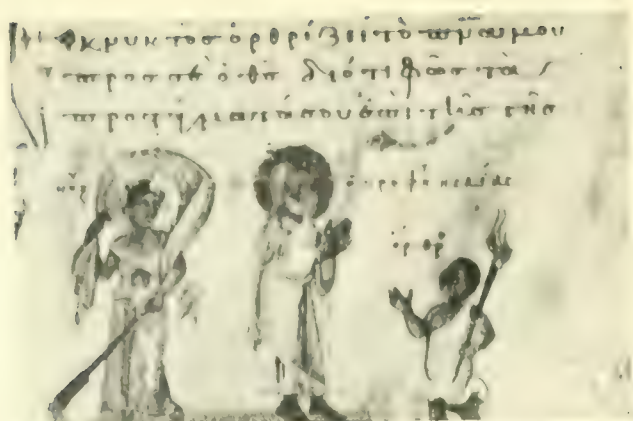 ἐκ νυκτὸσ ὀρθρίζει τὸ πν̅α μου
προσ σὲ ὁ θ̅σ διότι φῶσ τὰ
προστάγματά σου ἐπὶ τῆσ γῆσ
νὺξ
ὁ προφ ησαίας
ὀρθρ